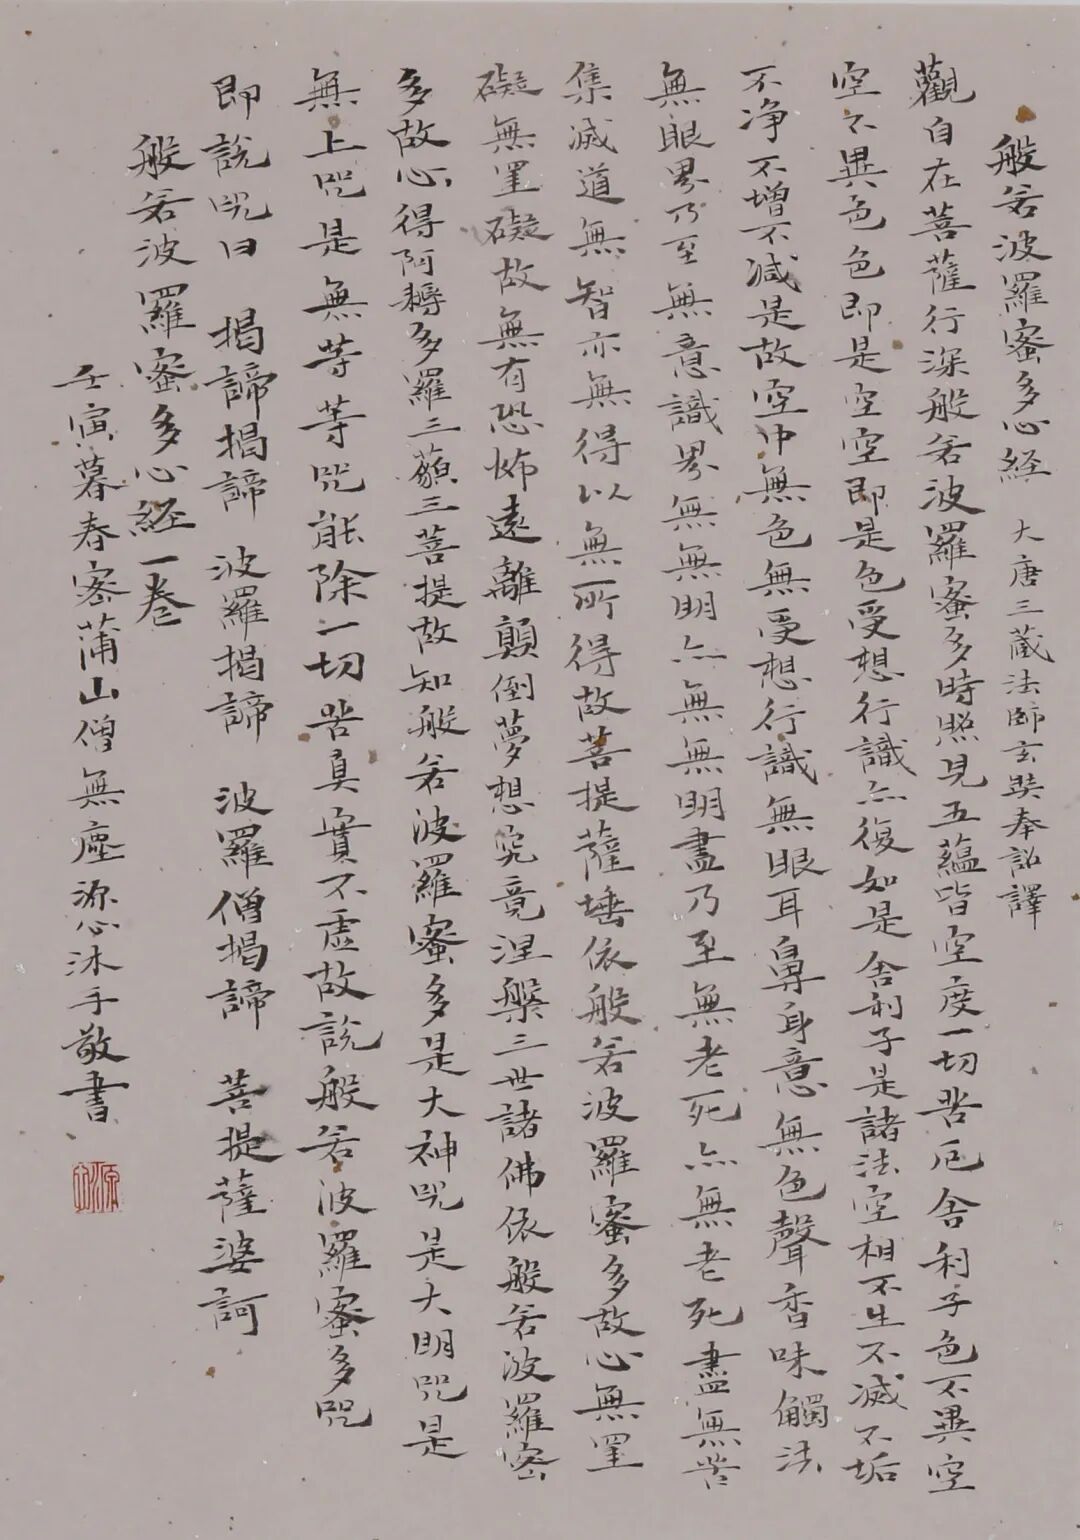 般若波羅蜜多心経 大唐三藏法師玄奘奉詔譯
觀自在菩薩行深般若波羅蜜多時照見五蘊皆空度一切苦厄舍利子色不異空
空不異色色即是空空即是色受想行識亦復如是舍利子是諸法空相不生不滅不垢
不净不增不减是故空中無色無受想行識無眼耳鼻身意無色聲香味觸法
無眼界乃至無意識界無無明亦無無明盡乃至無老死亦無老死盡無苦
集滅道無智亦無得以無所得故菩提薩埵依般若波羅蜜多故心無罣
礙無罣礙故無有恐怖遠離顛倒夢想究竟涅槃三世諸佛依般若波羅密
多故心得阿耨多羅三藐三菩提故知般若波羅蜜多是大神咒是大明咒是
無上咒是無等等咒能除一切苦真實不虛故說般若波羅蜜多咒
即說咒曰 揭諦揭諦 波羅揭諦 波羅僧揭諦 菩提薩婆訶
般若波羅蜜多心経一卷
壬寅暮春密蒲山僧無塵源心沐手敬書